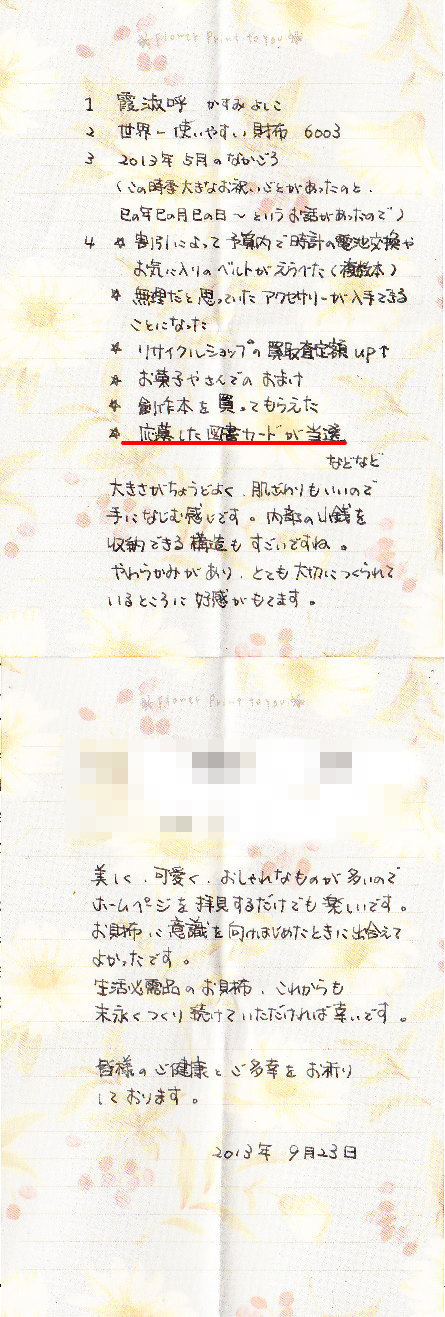 Flower Print to you
1 霞淑呼 かすみよしこ
2 世界一使いやすい財布 6003
3 2013年5月のなかごろ
(この時季大きなお祝いごとがあったのと、
巳の年巳の月巳の日〜というお話があったので)
4 ☆ 割引によって予算内で時計の電池交換や
お気に入りのベルトがえらべた(複数本)
☆ 無理だと思っていたアクセサリーが入手できる
ことになった
☆ リサイクルショップの買取査定額up↑
☆ お菓子やさんでのおまけ
☆ 創作本を買ってもらえた
☆ 応募した図書カードが当選
などなど
大きさがちょうどよく、肌ざわりもいいので
手になじむ感じです。内部の小銭を
収納できる構造もすごいですね。
やわらかみがあり、とても大切につくられて
いるところに好感がもてます。
Flower Print to you
美しく、可愛く、おしゃれなものが多いので
ホームページを拝見するだけでも楽しいです。
お財布に意識を向けはじめたときに出会えて
よかったです。
生活必需品のお財布、これからも
末永くつくり続けていただければ幸いです。
皆様のご健康とご多幸をお祈り
しております。
2013年 9月23日